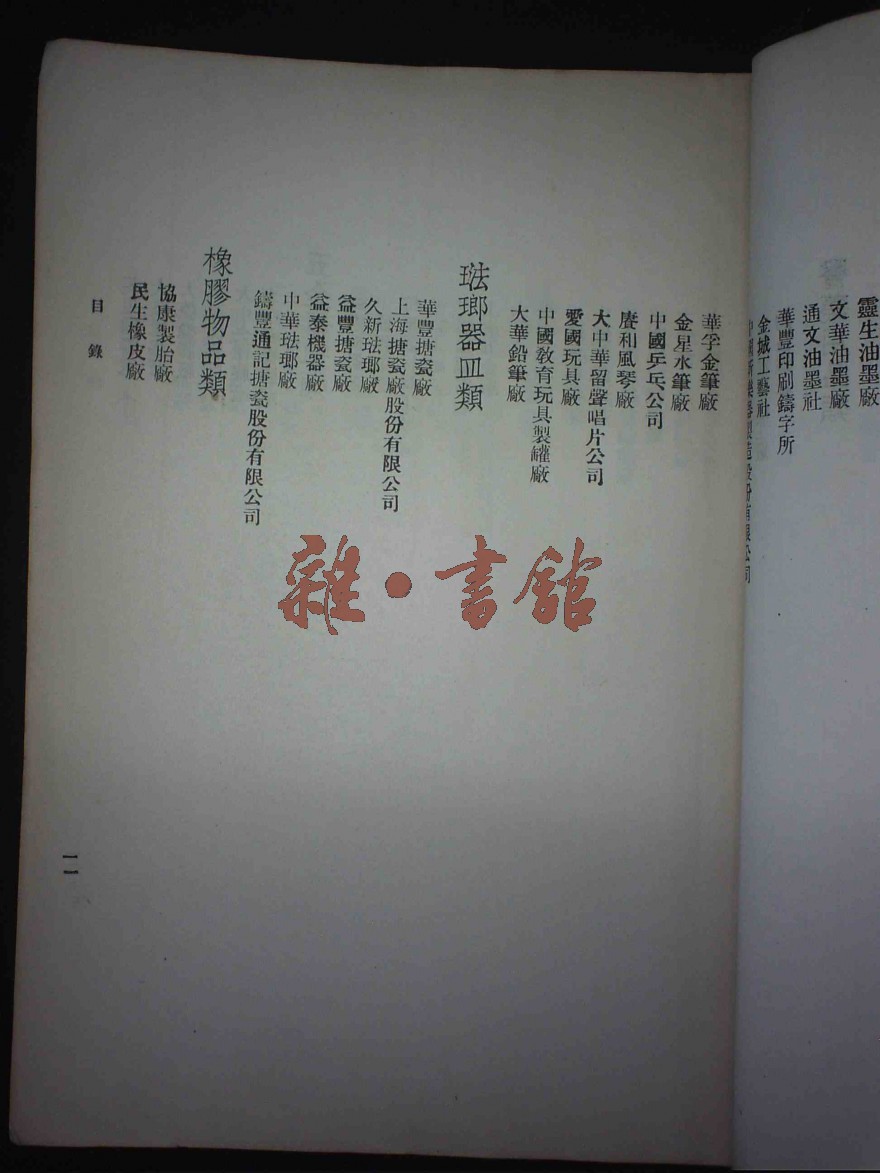 靈生油墨廠
文華油墨廠
通文油墨社
華豐印刷鑄字所
金城工藝社
造股份有限公司
華孚金筆廠
金星水筆廠
中國乒乓公司
賡和風琴廠
大中華留聲唱片公司
愛國玩具廠
中國敎育玩具製罐廠
大華鉛筆廠
琺瑯器皿類
華豐搪瓷廠
上海搪瓷廠股份有限公司
久新琺瑯廠
益豐搪瓷廠
益泰機器廠
中華琺瑯廠
鑄豐通記搪瓷股份有限公司
橡膠物品類
協康製胎廠
民生橡皮廠
目錄
一一
雜•書館